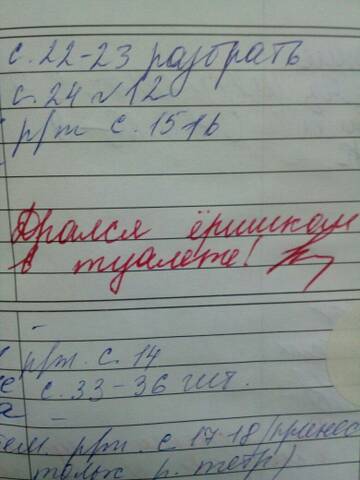 с. 22-23 разобрать
с. 24 №12
р/т с. 15 1b
Дрался ёршиком
в туалете!
-
р/т. с. 14
с. 33-36 чит.
а -
р/т. с 17-18 (принес
тольк р. тетр)